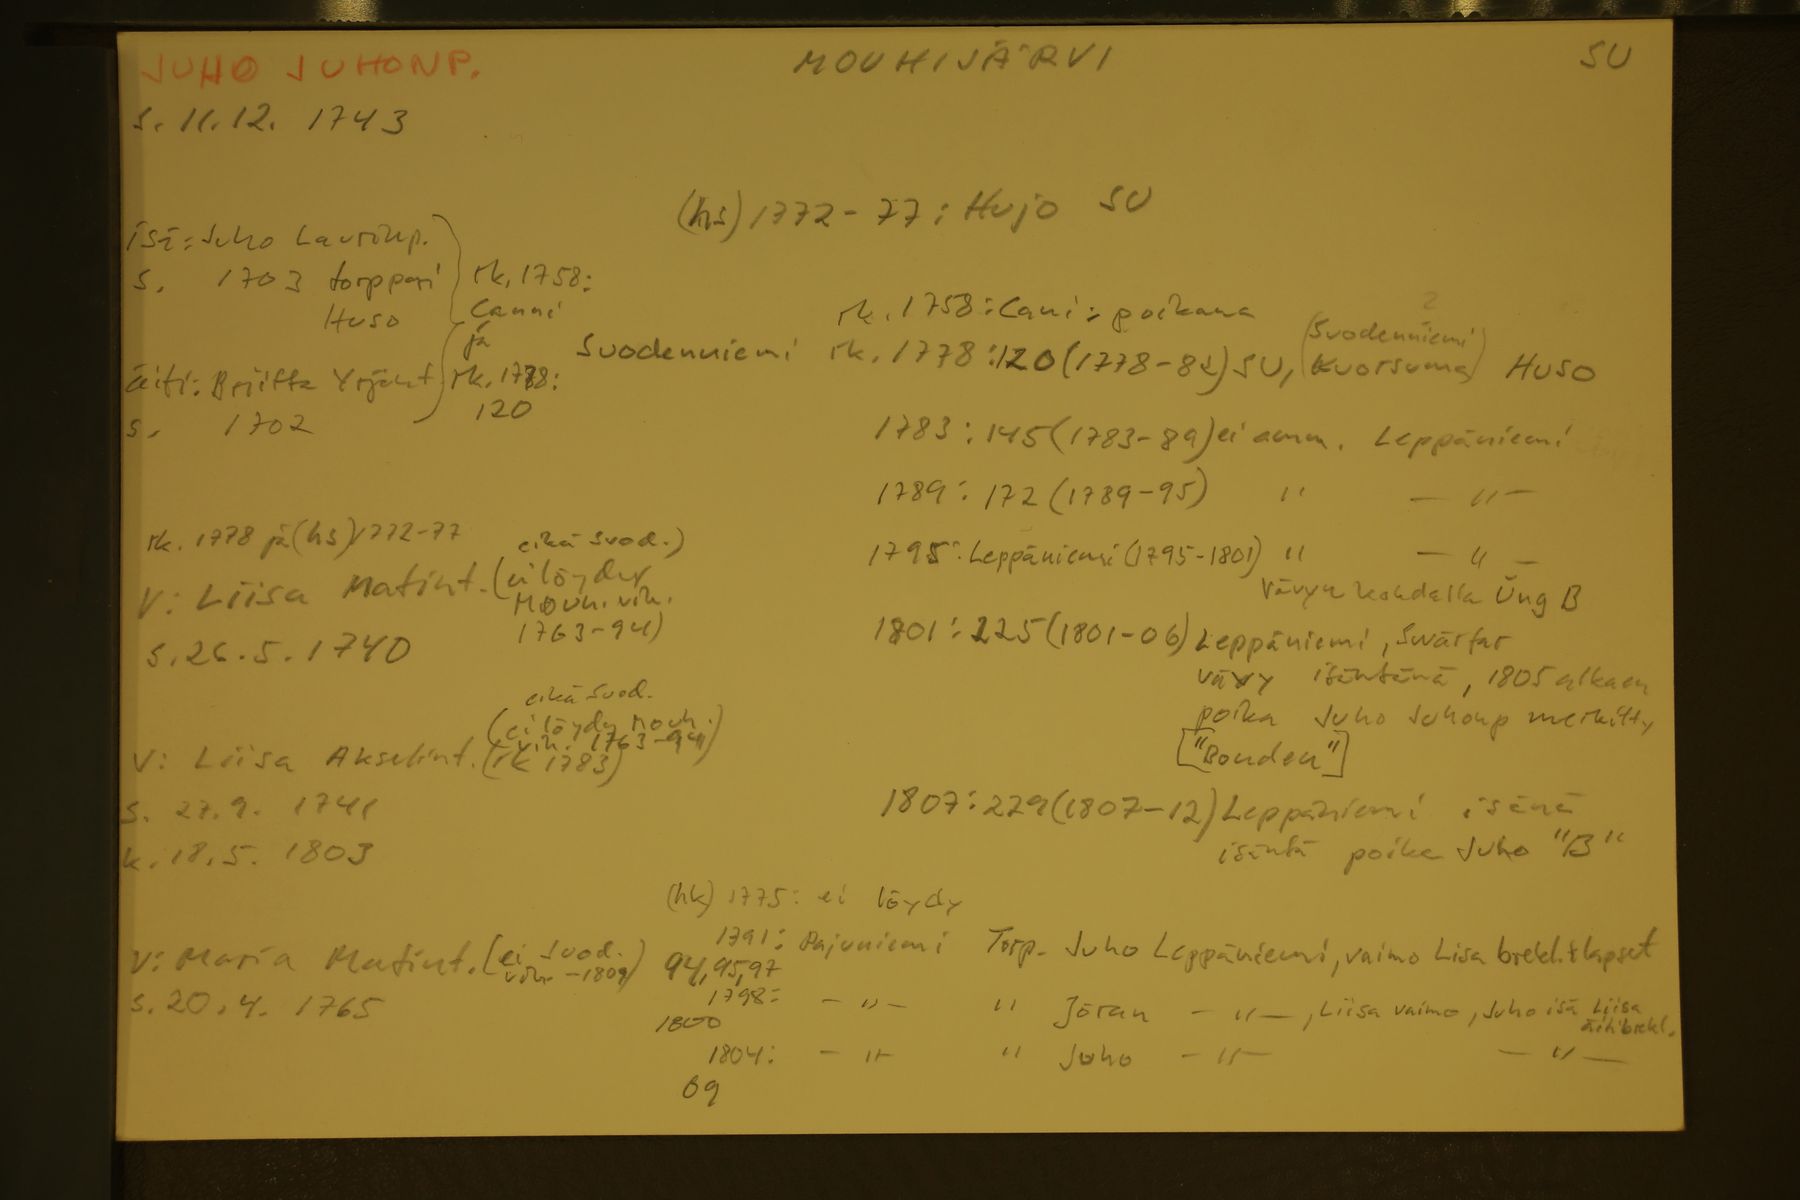 JUHO JUHONP. MOUHIJÄRVI SU
s. 11.12. 1743
(hs) 1772-77: Hujo SU
isä: Juho Laurinp.
s. 1703 torppari
Huso
rk. 1758:
Canni
ja
rk. 1778:
120
äiti: Briitta Yrjönt.
s. 1702
rk. 1758: Cani: poikana
Suodenniemi rk. 1778: 120 (1778-82) SU, (Suodenniemi Kuorsuma) Huso
1783: 145 (1783-89) ei amm. Leppäniemi
1789: 172 (1789-95) " - " -
1795: Leppäniemi (1795-1801) " - " -
Vävyn kohdalla Ung B
1801: 225 (1801-06) Leppäniemi, Svärfar
vävy isäntänä, 1805 alkaen
poika Juho Juhonp merkitty
["Bonden"]
1807: 229 (1807-12) Leppäniemi isänä
isäntä poika Juho "B"
rk. 1778 ja (hs) 1772-77
V: Liisa Matint. (ei löydy
Mouh. vih.
1763-94)
eikä Suod.)
s. 26.5. 1740
eikä Suod.
(ei löydy Mouh.
vih. 1763-94)
V: Liisa Akselint. (rk 1783)
s. 27.9. 1741
k. 18.5. 1803
V: Maria Matint. (ei Suod.
vih. -1809)
s. 20.4. 1765
(hk) 1775: ei löydy
1791: Pajuniemi Torp. Juho Leppäniemi, vaimo Lisa brekl. + lapset
94, 95, 97
1798: - " - " Jöran - " -, Liisa vaimo, Juho isä Liisa
äiti brekl.
1800
1804: - " - " Juho - " - - " -
09